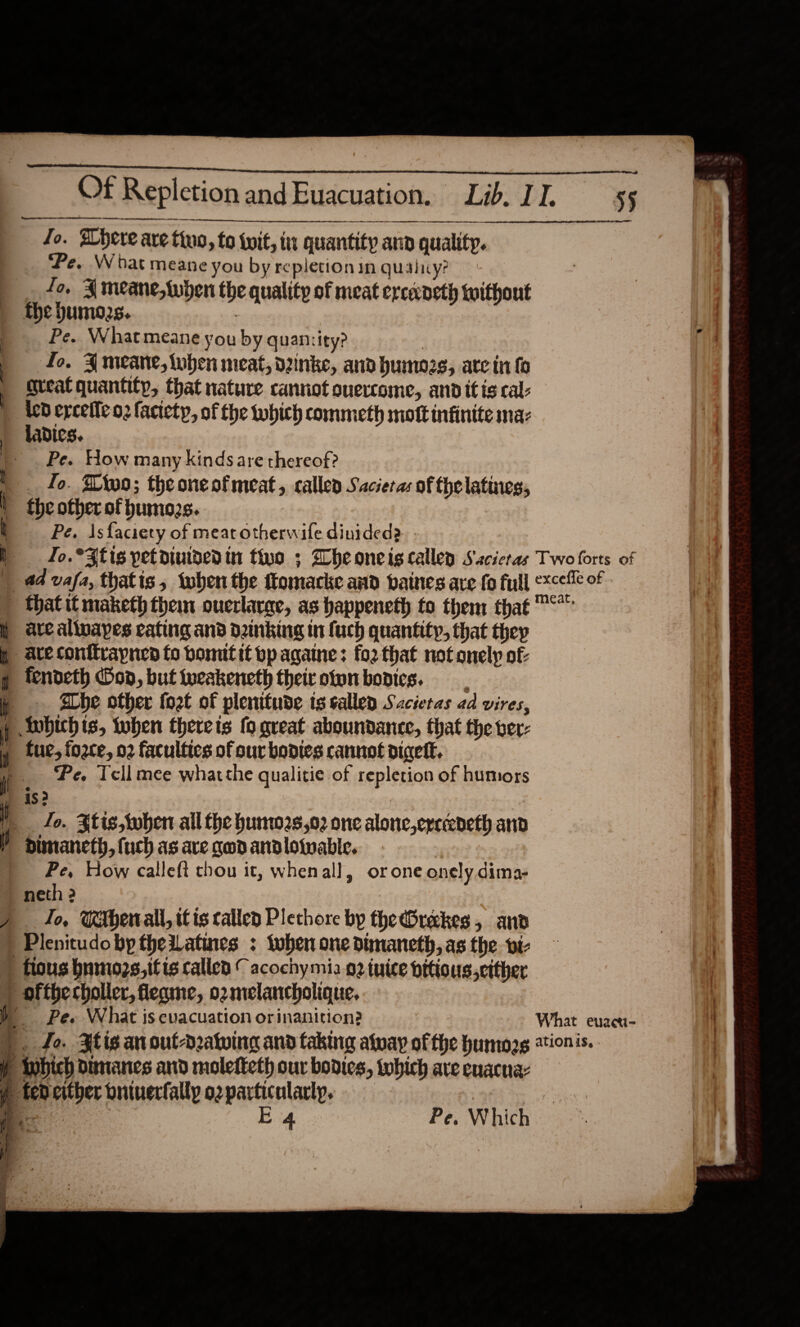 Of Repletion and Euacuation. Lib. II. 55
Io. There are two, to wit, in quantity and quality.
Pe. What meane you by repletion in quality?
Io. I meane, when the quality of meat exceedeth without
the humors.
Pe. What meane you by quantity?
Io. I meane, when meat, drinke, and humors, are in so
great quantity, that nature cannot ouercome, and it is cal-
led excesse or saciety, of the which commeth most infinite ma-
ladies.
Pe. How many kinds are thereof?
Io Two; the one of meat, called Sacietas of the latines,
the other of humors.
Pe. Is saciety of meat otherwise diuided?
Io. It is yet diuided in two ; The one is called Sacietas
Two sorts of
excesse of
meat.
ad vasa, that is, when the stomacke and vaines are so full
that it maketh them ouerlarge, as happeneth to them that
are alwayes eating and drinking in such quantity, that they
are constrayned to vomit it vp againe: for that not onely of-
fendeth God, but weakeneth their own bodies.
The other sort of plenitude is called Sacietas ad vires,
which is, when there is so great aboundance, that the ver-
tue, force, or faculties of our bodies cannot digest.
Pe. Tell mee what the qualitie of repletion of humors
is?
Io. It is, when all the humors, or one alone, exceedeth and
dimaneth, such as are good and lowable.
Pe. How callest thou it, when all, or one onely dima-
neth?
Io. When all, it is called Plethore by the Greekes, and
Plenitudo by the Latines : when one dimaneth, as the vi-
tious hnmors, it is called Cacochymia or iuice vitious, either
of the choller, flegme, or melancholique.
Pe. What is euacuation or inanition?
What euacu-
ation is.
Io. It is an out-drawing and taking away of the humors
which dimanes and molesteth our bodies, which are euacua-
ted either vniuersally or particularly.
E 4
Pe. Which